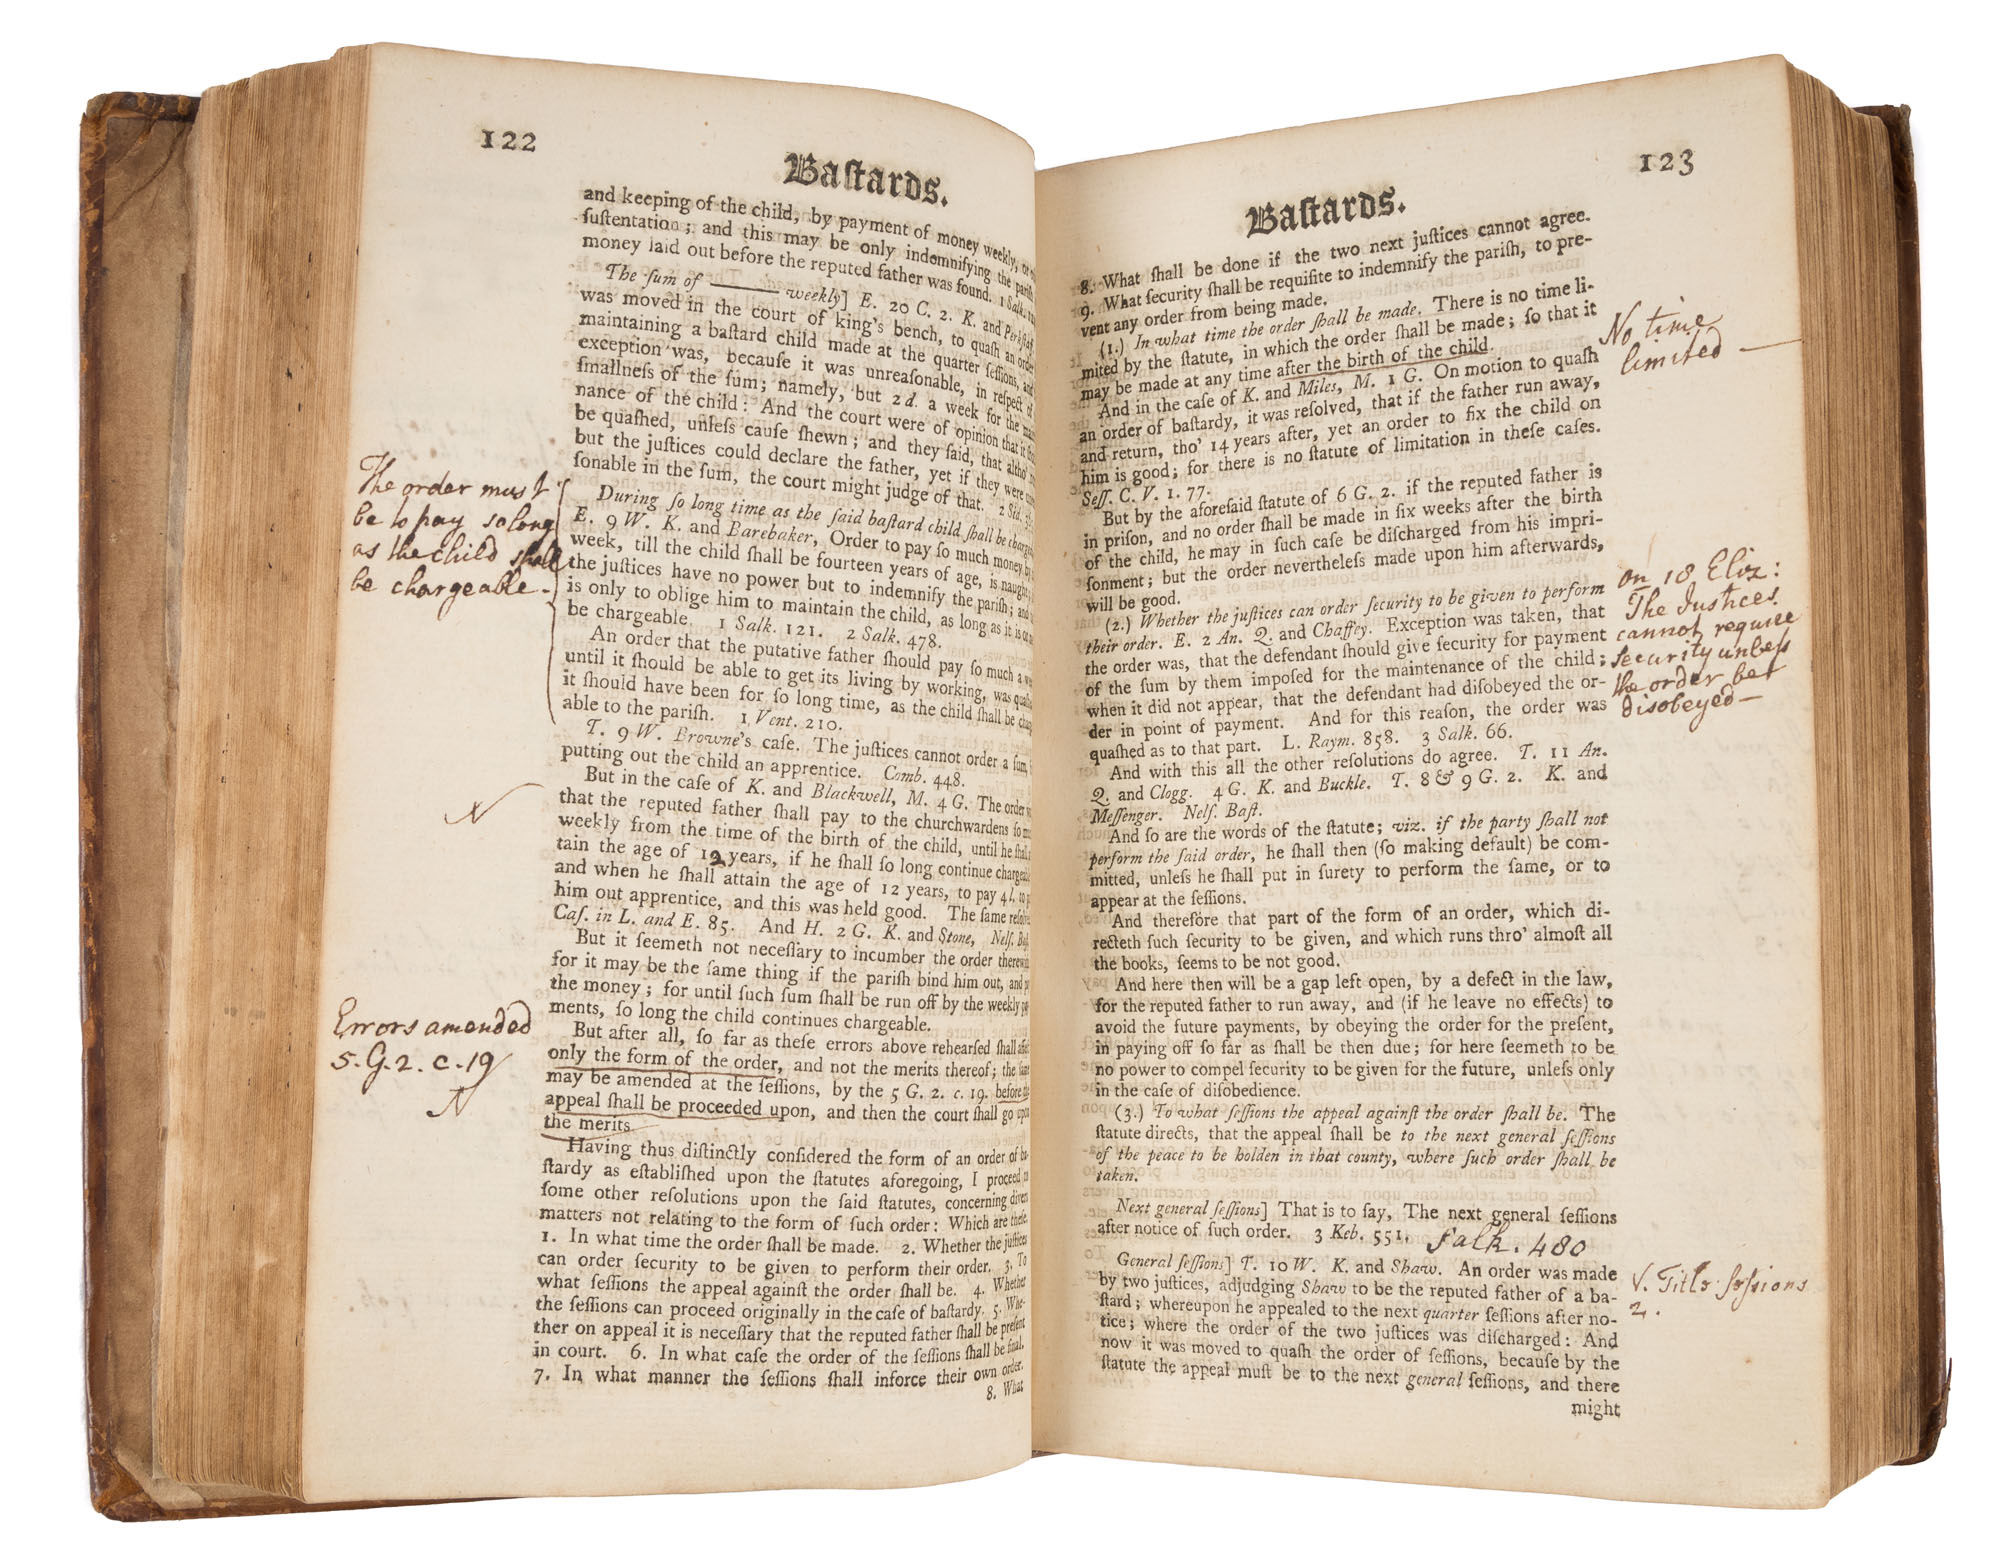 122
Baſtards.
and keeping of the child, by payment of money weekly, or
ſuſtentation; and this may be only indemnifying the pariſh
money laid out before the reputed father was found. 1 Salk.
The ſum of ——— weekly] E. 20 C. 2. K. and
was moved in the court of king's bench, to quaſh an order
maintaining a baſtard child made at the quarter ſeſſions, and
exception was, becauſe it was unreaſonable, in reſpect of
ſmallneſs of the ſum; namely, but 2d. a week for the
nance of the child: And the court were of opinion that it
be quaſhed, unleſs cauſe ſhewn; and they ſaid, that altho'
but the juſtices could declare the father, yet if they were
ſonable in the ſum, the court might judge of that. 2 Sid.
During ſo long time as the ſaid baſtard child ſhall be
E. 9 W. K. and Barebaker, Order to pay ſo much money by
week, till the child ſhall be fourteen years of age, is naught;
the juſtices have no power but to indemnify the pariſh; and
is only to oblige him to maintain the child, as long as it is
be chargeable. 1 Salk. 121. 2 Salk. 478.
An order that the putative father ſhould pay ſo much a
until it ſhould be able to get its living by working, was
it ſhould have been for ſo long time, as the child ſhall be
able to the pariſh. 1 Vent. 210.
T. 9 W. Browne's caſe. The juſtices cannot order a ſum,
putting out the child an apprentice. Comb. 448.
But in the caſe of K. and Blackwell, M. 4 G. The order
that the reputed father ſhall pay to the churchwardens ſo
weekly from the time of the birth of the child, until he ſhall
tain the age of 12 years, if he ſhall ſo long continue
and when he ſhall attain the age of 12 years, to pay 4l. to
him out apprentice, and this was held good. The ſame
Caſ. in L. and E. 85. And H. 2 G. K. and Stone, Nelſ. Baſt.
But it ſeemeth not neceſſary to incumber the order
for it may be the ſame thing if the pariſh bind him out, and
the money; for until ſuch ſum ſhall be run off by the weekly
ments, ſo long the child continues chargeable.
But after all, ſo far as theſe errors above rehearſed ſhall
only the form of the order, and not the merits thereof; the
may be amended at the ſeſſions, by the 5 G. 2. c. 19. before
appeal ſhall be proceeded upon, and then the court ſhall go upon
the merits.
Having thus diſtinctly conſidered the form of an order of ba-
ſtardy as eſtabliſhed upon the ſtatutes aforegoing, I proceed
ſome other reſolutions upon the ſaid ſtatutes, concerning divers
matters not relating to the form of ſuch order: Which are theſe.
1. In what time the order ſhall be made. 2. Whether the juſtices
can order ſecurity to be given to perform their order. 3. To
what ſeſſions the appeal againſt the order ſhall be. 4. Whether
the ſeſſions can proceed originally in the caſe of baſtardy. 5. Whe-
ther on appeal it is neceſſary that the reputed father ſhall be preſent
in court. 6. In what caſe the order of the ſeſſions ſhall be final.
7. In what manner the ſeſſions ſhall inforce their own order.
8. What
The order must
be to pay so long
as the child shall
be chargeable -
N
Errors amended
5. G. 2. c. 19
N
123
Baſtards.
8. What ſhall be done if the two next juſtices cannot agree.
9. What ſecurity ſhall be requiſite to indemnify the pariſh, to pre-
vent any order from being made.
(1.) In what time the order ſhall be made. There is no time li-
mited by the ſtatute, in which the order ſhall be made; ſo that it
may be made at any time after the birth of the child.
And in the caſe of K. and Miles, M. 1 G. On motion to quaſh
an order of baſtardy, it was reſolved, that if the father run away,
and return, tho' 14 years after, yet an order to fix the child on
him is good; for there is no ſtatute of limitation in theſe caſes.
Seſſ. C. V. 1. 77.
But by the aforeſaid ſtatute of 6 G. 2. if the reputed father is
in priſon, and no order ſhall be made in ſix weeks after the birth
of the child, he may in ſuch caſe be diſcharged from his impri-
ſonment; but the order nevertheleſs made upon him afterwards,
will be good.
(2.) Whether the juſtices can order ſecurity to be given to perform
their order. E. 2 An. Q. and Chaffey. Exception was taken, that
the order was, that the defendant ſhould give ſecurity for payment
of the ſum by them impoſed for the maintenance of the child;
when it did not appear, that the defendant had diſobeyed the or-
der in point of payment. And for this reaſon, the order was
quaſhed as to that part. L. Raym. 858. 3 Salk. 66.
And with this all the other reſolutions do agree. T. 11 An.
Q. and Clogg. 4 G. K. and Buckle. T. 8 & 9 G. 2. K. and
Meſſenger. Nelſ. Baſt.
And ſo are the words of the ſtatute; viz. if the party ſhall not
perform the ſaid order, he ſhall then (ſo making default) be com-
mitted, unleſs he ſhall put in ſurety to perform the ſame, or to
appear at the ſeſſions.
And therefore that part of the form of an order, which di-
recteth ſuch ſecurity to be given, and which runs thro' almoſt all
the books, ſeems to be not good.
And here then will be a gap left open, by a defect in the law,
for the reputed father to run away, and (if he leave no effects) to
avoid the future payments, by obeying the order for the preſent,
in paying off ſo far as ſhall be then due; for here ſeemeth to be
no power to compel ſecurity to be given for the future, unleſs only
in the caſe of diſobedience.
(3.) To what ſeſſions the appeal againſt the order ſhall be. The
ſtatute directs, that the appeal ſhall be to the next general ſeſſions
of the peace to be holden in that county, where ſuch order ſhall be
taken.
Next general ſeſſions] That is to ſay, The next general ſeſſions
after notice of ſuch order. 3 Keb. 551. Salk. 480
General ſeſſions] T. 10 W. K. and Shaw. An order was made
by two juſtices, adjudging Shaw to be the reputed father of a ba-
ſtard; whereupon he appealed to the next quarter ſeſſions after no-
tice; where the order of the two juſtices was diſcharged: And
now it was moved to quaſh the order of ſeſſions, becauſe by the
ſtatute the appeal muſt be to the next general ſeſſions, and there
might
No time
limited —
on 18 Eliz:
The Justices
cannot require
security unleſs
the order be
disobeyed —
V. Title Seſsions
2.